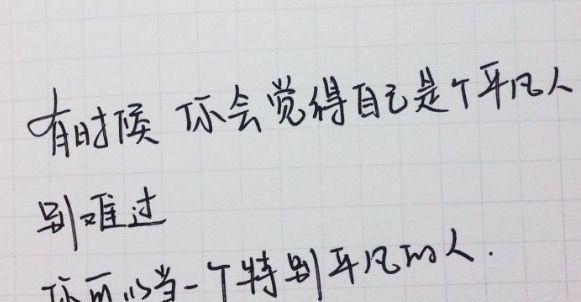 有时候 你会觉得自己是个平凡人
别难过
你可以当一个特别平凡的人.